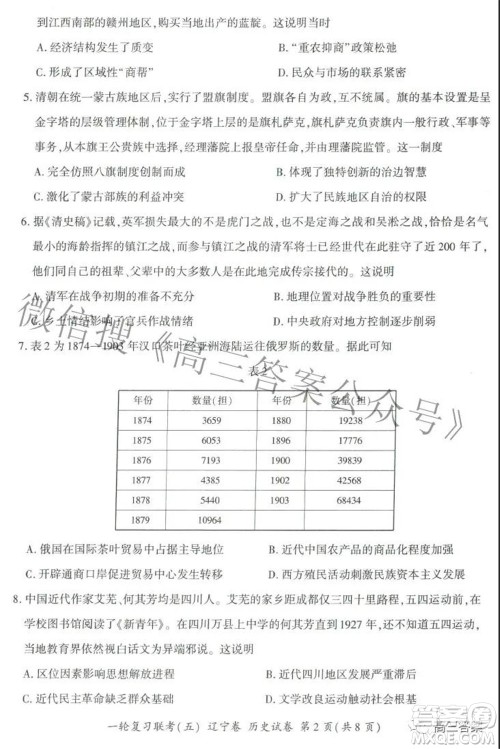 到江西南部的赣州地区,购买当地出产的蓝靛。这说明
A. 经济结构发生了质变
B. “重农抑商”政策松弛
C. 形成了区域性“商帮”
D. 民众与市场的联系紧密
5. 清朝在统一蒙古族地区后,实行了盟旗制度。旗盟并存,互不统属。旗的基本设置是呈
金字塔的层级管理体制,负责人为旗札萨克,旗札萨克负责旗内一般的行政、司法、军
事等事务,从本旗王公贵族中选择,经理藩院上报皇帝任命,并由理藩院监管。这一制度
A. 完全效仿八旗制度创制而成
B. 体现了独特创新的治边智慧
C. 激化了蒙古部族的内部矛盾
D. 扩大了民族地区自治的权限
6. 据《清史稿》记载,英军损失最大的不是虎门之战,也不是定海之战和吴淞之战,恰恰是名气
最小的海龄指挥的镇江之战,而参与镇江之战的清军将士已经于此驻守了近 200 年了,他
们同自己的祖辈、父辈中的大多数人一样,在此地完成传宗接代的。这说明
A. 清军在战争初期的准备不充分
B. 地理位置对战争胜负的影响大
C. 乡土情结影响了官兵作战情绪
D. 中央政府对地方控制逐步削弱
7. 表 2 为 1874—1903 年汉口茶叶经亚洲海陆运往俄罗斯的数量。据此可知
表 2
年份 数量(担) 年份 数量(担)
1874 3659 1880 19238
1875 6053 1896 17776
1876 7193 1900 39930
1877 4385 1902 42568
1878 5440 1903 68434
1879 10964
A. 俄国在国际茶叶贸易中占据主导地位
B. 近代中国农产品的商品化程度提高
C. 开辟通商口岸促进贸易中心发生转移
D. 西方殖民活动刺激了民族经济发展
8. 中国近代作家艾芜、何其芳均是四川人。艾芜的家乡距成都仅三四十里路程,五四运动前,在
学校图书馆阅读到《新青年》。而在四川万县上中学的何其芳直到 1927 年,还不知五四运动,
当地教育界依然视白话文为异端邪说。这说明
A. 区位因素影响思想解放进程
B. 近代四川地区发展不平衡
C. 新文化运动的影响范围有限
D. 新旧思想交锋日趋激烈
一轮复习联考(五) 辽宁卷 历史试卷 第 2 页(共 8 页)
微信搜《高三答案公众号》
高三答案